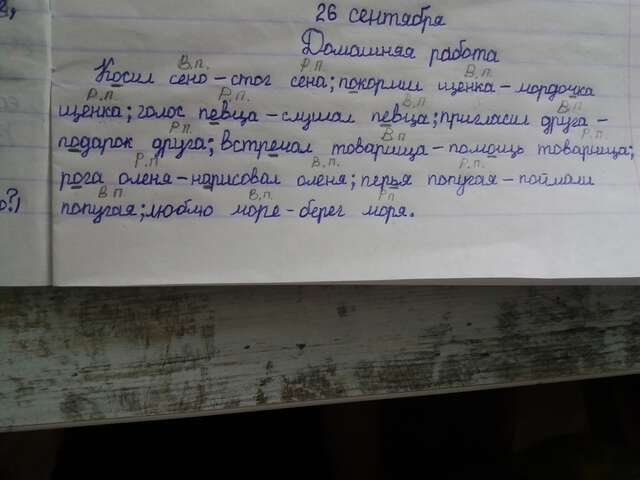 26 сентября
Домашняя работа
В.п. Р.п. В.п
Косил сено - стог сена; покормил щенка - мордочка
Р.п. Р.п. В.п. В.п
щенка; голос певца - слушал певца; пригласил друга -
Р.п. В.п Р.п.
подарок друга; встречал товарища - помощь товарища;
Р.п В.п. Р.п.
рога оленя - нарисовал оленя; перья попугая - поймали
В.п. В.п. Рп
попугая; люблю море - берег моря.